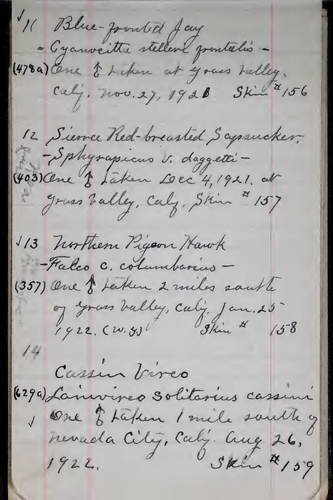 ✓11 Blue-fronted Jay
- Cyanocitta stelleri frontalis -
(478a) One ♂ taken at Grass Valley,
Calif. Nov. 27, 1921 Skin # 156
12 Sierra Red-breasted Sapsucker.
- Sphyrapicus v. daggetti -
(403) One ♂ taken Dec 4, 1921. at
Grass Valley, Calif. Skin # 157
✓13 Northern Pigeon Hawk
- Falco c. columbarius -
(357) One ♂ taken 2 miles south
of Grass Valley, Calif. Jan. 25
1922. Skin # 158
14
Cassin Vireo
(629a) Lanivireo solitarius cassini
✓ One ♂ taken 1 mile south of
Nevada City, Calif. Aug 26,
1922. Skin # 159